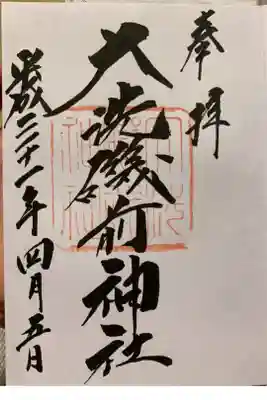 奉拝
大洗磯前神社
平成二十一年四月五日